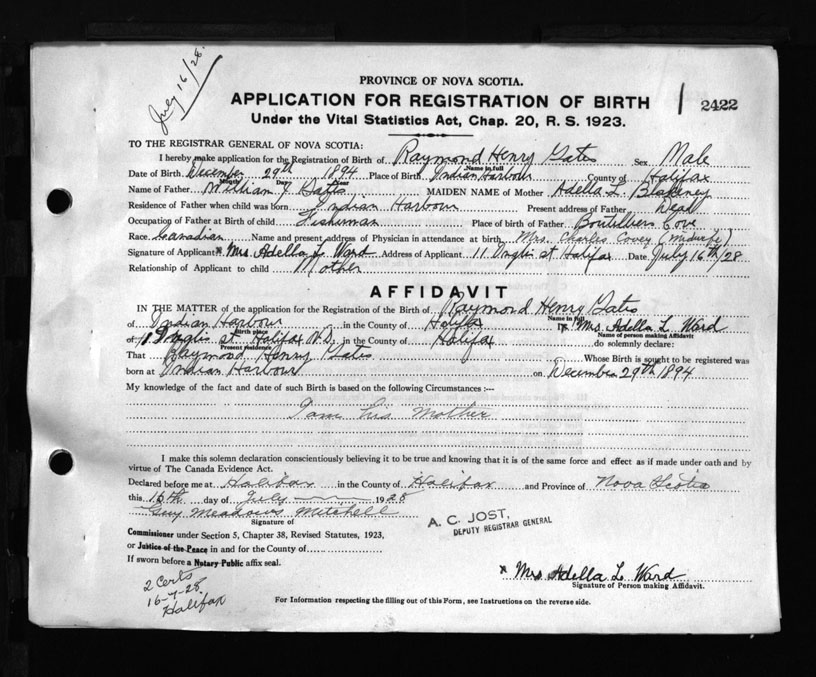 July 16/28.
PROVINCE OF NOVA SCOTIA.
APPLICATION FOR REGISTRATION OF BIRTH
2422
Under the Vital Statistics Act, Chap. 20, R. S. 1923.
TO THE REGISTRAR GENERAL OF NOVA SCOTIA:
I hereby make application for the Registration of Birth of Raymond Henry Gates Sex Male
Name in full
Date of Birth December 29th 1894 Place of Birth Indian Harbour County of Halifax
Month Day Year
Name of Father William Gates MAIDEN NAME of Mother Adella L. Blakeney
Residence of Father when child was born Indian Harbour Present address of Father Dead
Occupation of Father at Birth of child Fisherman Place of birth of Father Boutilliers Cove
Race Canadian Name and present address of Physician in attendance at birth Mrs. Charles Covey (Midwife)
Signature of Applicant x Mrs Adella L Ward Address of Applicant 11 St Halifax Date July 16th/28
Relationship of Applicant to child Mother
AFFIDAVIT
IN THE MATTER of the application for the Registration of the Birth of Raymond Henry Gates
Name in full
of Indian Harbour in the County of Halifax I, Mrs Adella L Ward
Birth place Name of person making Affidavit
of St. Halifax N.S. in the County of Halifax do solemnly declare:
Present residence
That Raymond Henry Gates Whose Birth is sought to be registered was
born at Indian Harbour on December 29th 1894
My knowledge of the fact and date of such Birth is based on the following Circumstances :--
I am his Mother
I make this solemn declaration conscientiously believing it to be true and knowing that it is of the same force and effect as if made under oath and by
virtue of The Canada Evidence Act.
Declared before me at Halifax in the County of Halifax and Province of Nova Scotia
this 16th day of July 1928
Guy Meadows Mitchell
Signature of
A. C. JOST,
DEPUTY REGISTRAR GENERAL
Commissioner under Section 5, Chapter 38, Revised Statutes, 1923,
or Justice of the Peace in and for the County of
If sworn before a Notary Public affix seal.
x Mrs Adella L Ward
Signature of Person making Affidavit.
2 Certs
16-7-28
Halifax
For Information respecting the filling out of this Form, see Instructions on the reverse side.